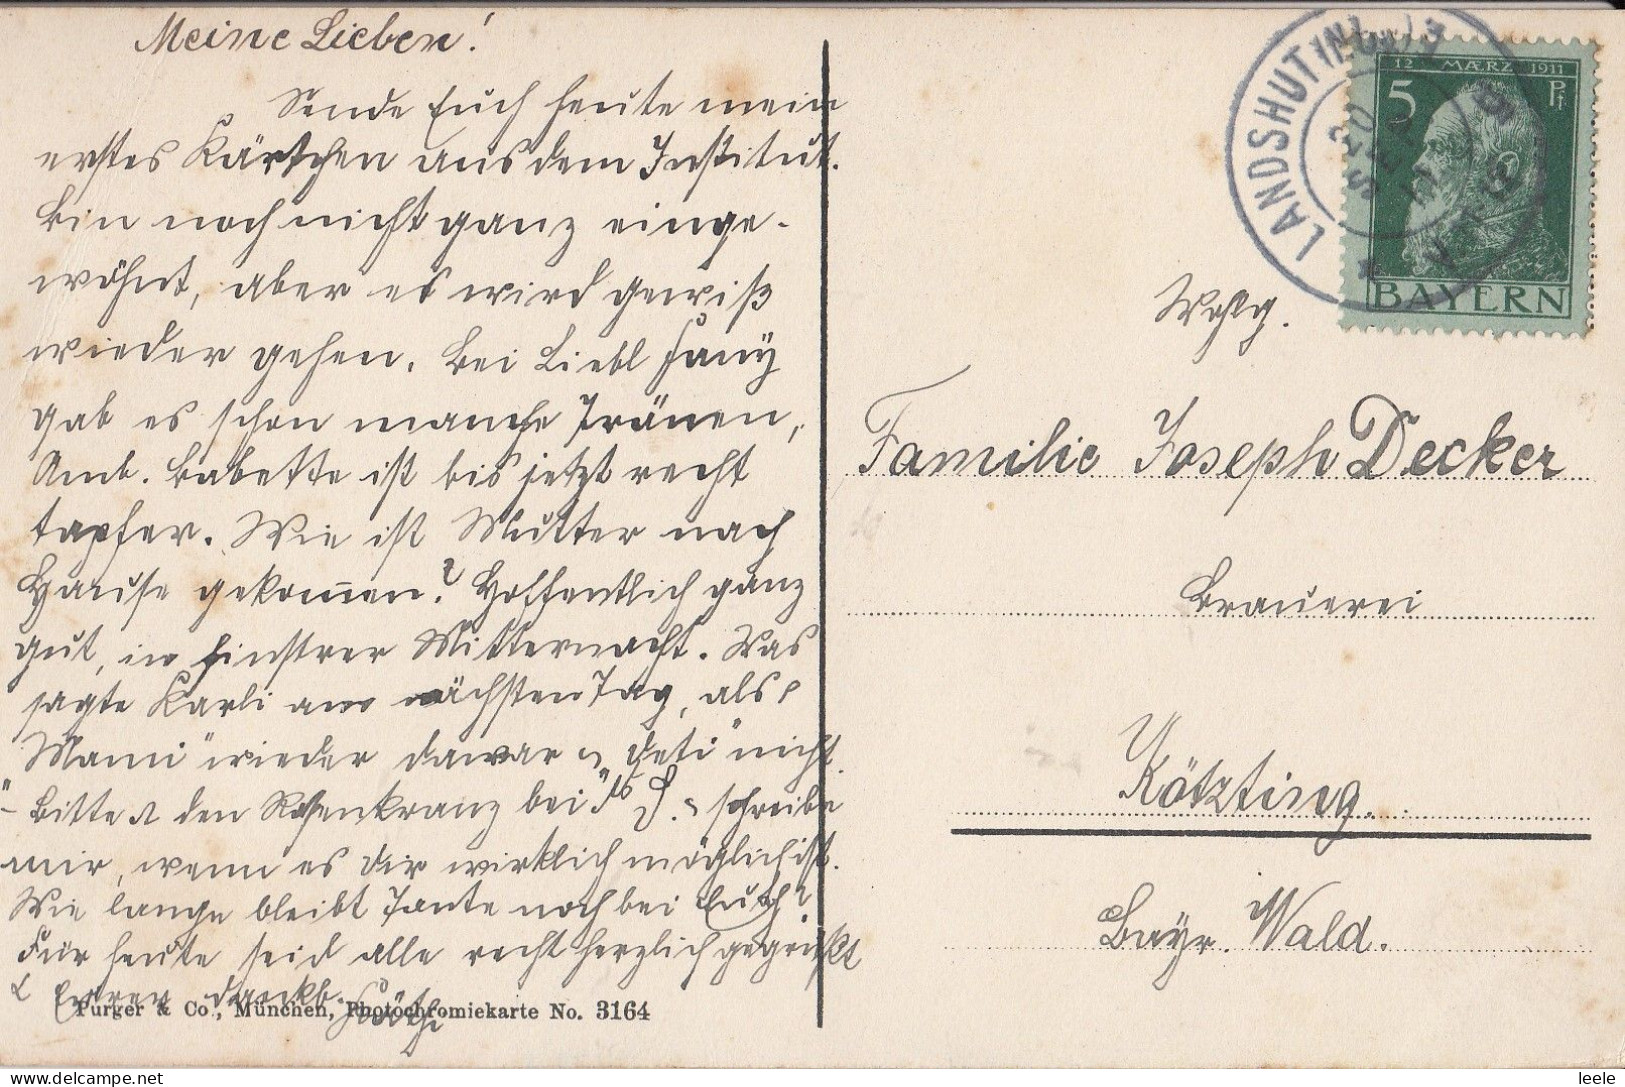 Meine Lieben!
Sende Euch heute mein
erstes Kärtchen aus dem Institut.
Bin noch nicht ganz einge-
wöhnt, aber es wird gewiß
wieder gehen. Bei Liebl Fanÿ
gab es schon manche Tränen,
Amb. Babette ist bis jetzt recht
tapfer. Wie ist Mutter nach
Hause gekommen? Hoffentlich ganz
gut, in finstrer Mitternacht. Was
sagte Karli am nächsten Tag, als
"Mami" wieder da war u. "Geti" nicht.
- Bitte den Rosenkranz bei schreibe
mir, wenn es dir wirklich möglich ist.
Wie lange bleibt Tante noch bei Euch?
Für heute seid alle recht herzlich gegrüßt
Eurer dankb.
Purger & Co., München, Photochromiekarte No. 3164
LANDSHUT
20
SEP
11
12 MÆRZ 1911
5 Pf
BAYERN
Wohlg.
Familie Joseph Decker
Brauerei
Kötzting.
Bayr. Wald.
leele